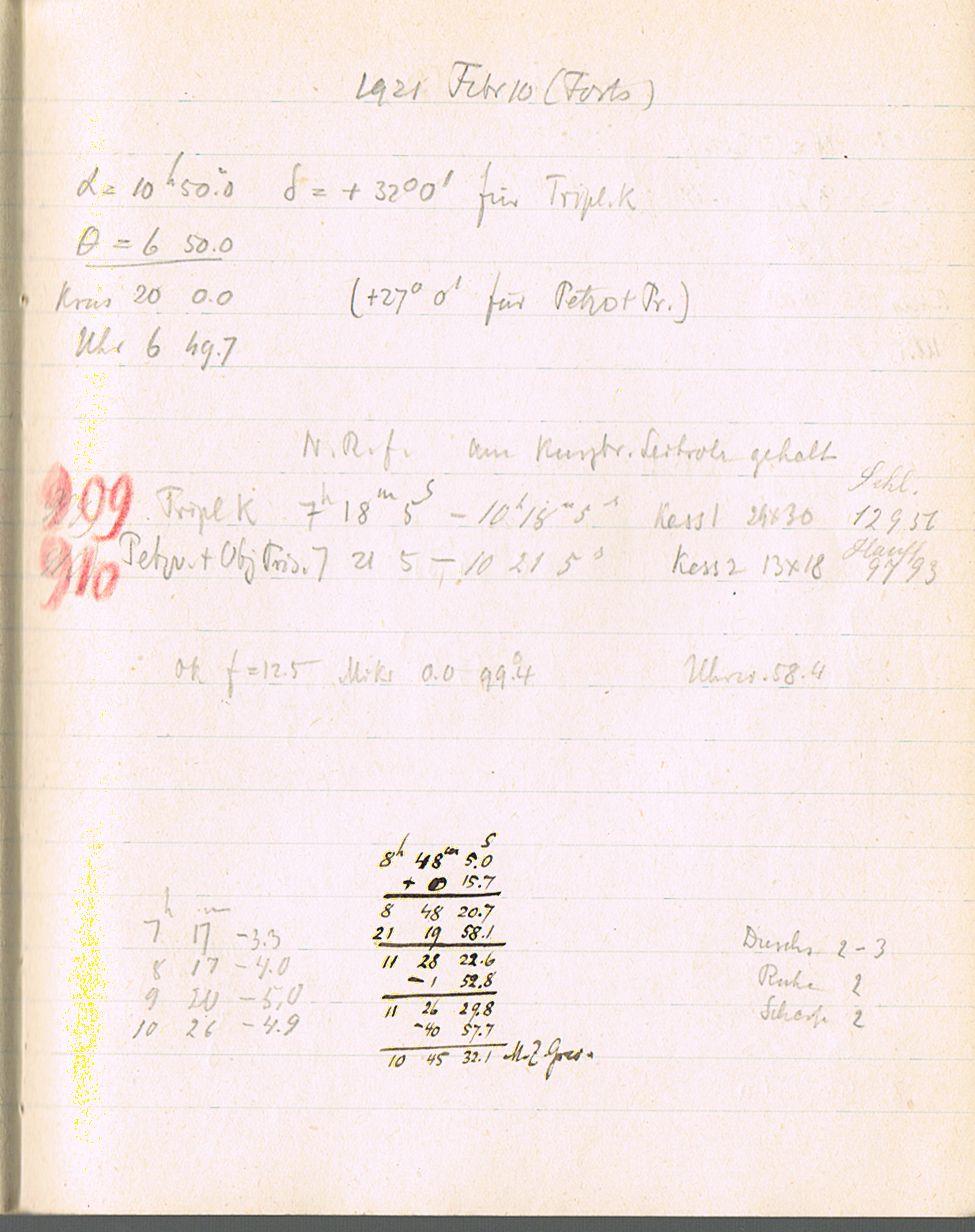 1921 Febr 10 (Forts)
α = 10ʰ 50.ᵐ0 δ = + 32° 0' für Tripl. K
θ = 6 50.0
Kreis 20 0.0 (+27° 0' für Petzv + Pr.)
Uhr 6 49.7
N. R. f. am kurzbr. Leitrohr gehalt
Schl.
909 Tripl K 7ʰ 18ᵐ 5ˢ – 10ʰ 18ᵐ 5ˢ Kass 1 24x30 12956
Hauff
910 Petzv. + Obj Pris. 7 21 5 – 10 21 5ˢ Kass 2 13x18 9793
Ok f = 12.5 Mikr 0.0 99.4 Uhrw. 58.4
8ʰ 48ᵐ 5.0ˢ
+ 0 15.7
8 48 20.7
21 19 58.1
11 28 22.6
– 1 52.8
11 26 29.8
-40 57.7
10 45 32.1 M.Z. Grw.
h m
7 17 -3.3
8 17 -4.0
9 20 -5.0
10 26 -4.9
Durchs 2-3
Ruhe 2
Schärfe 2